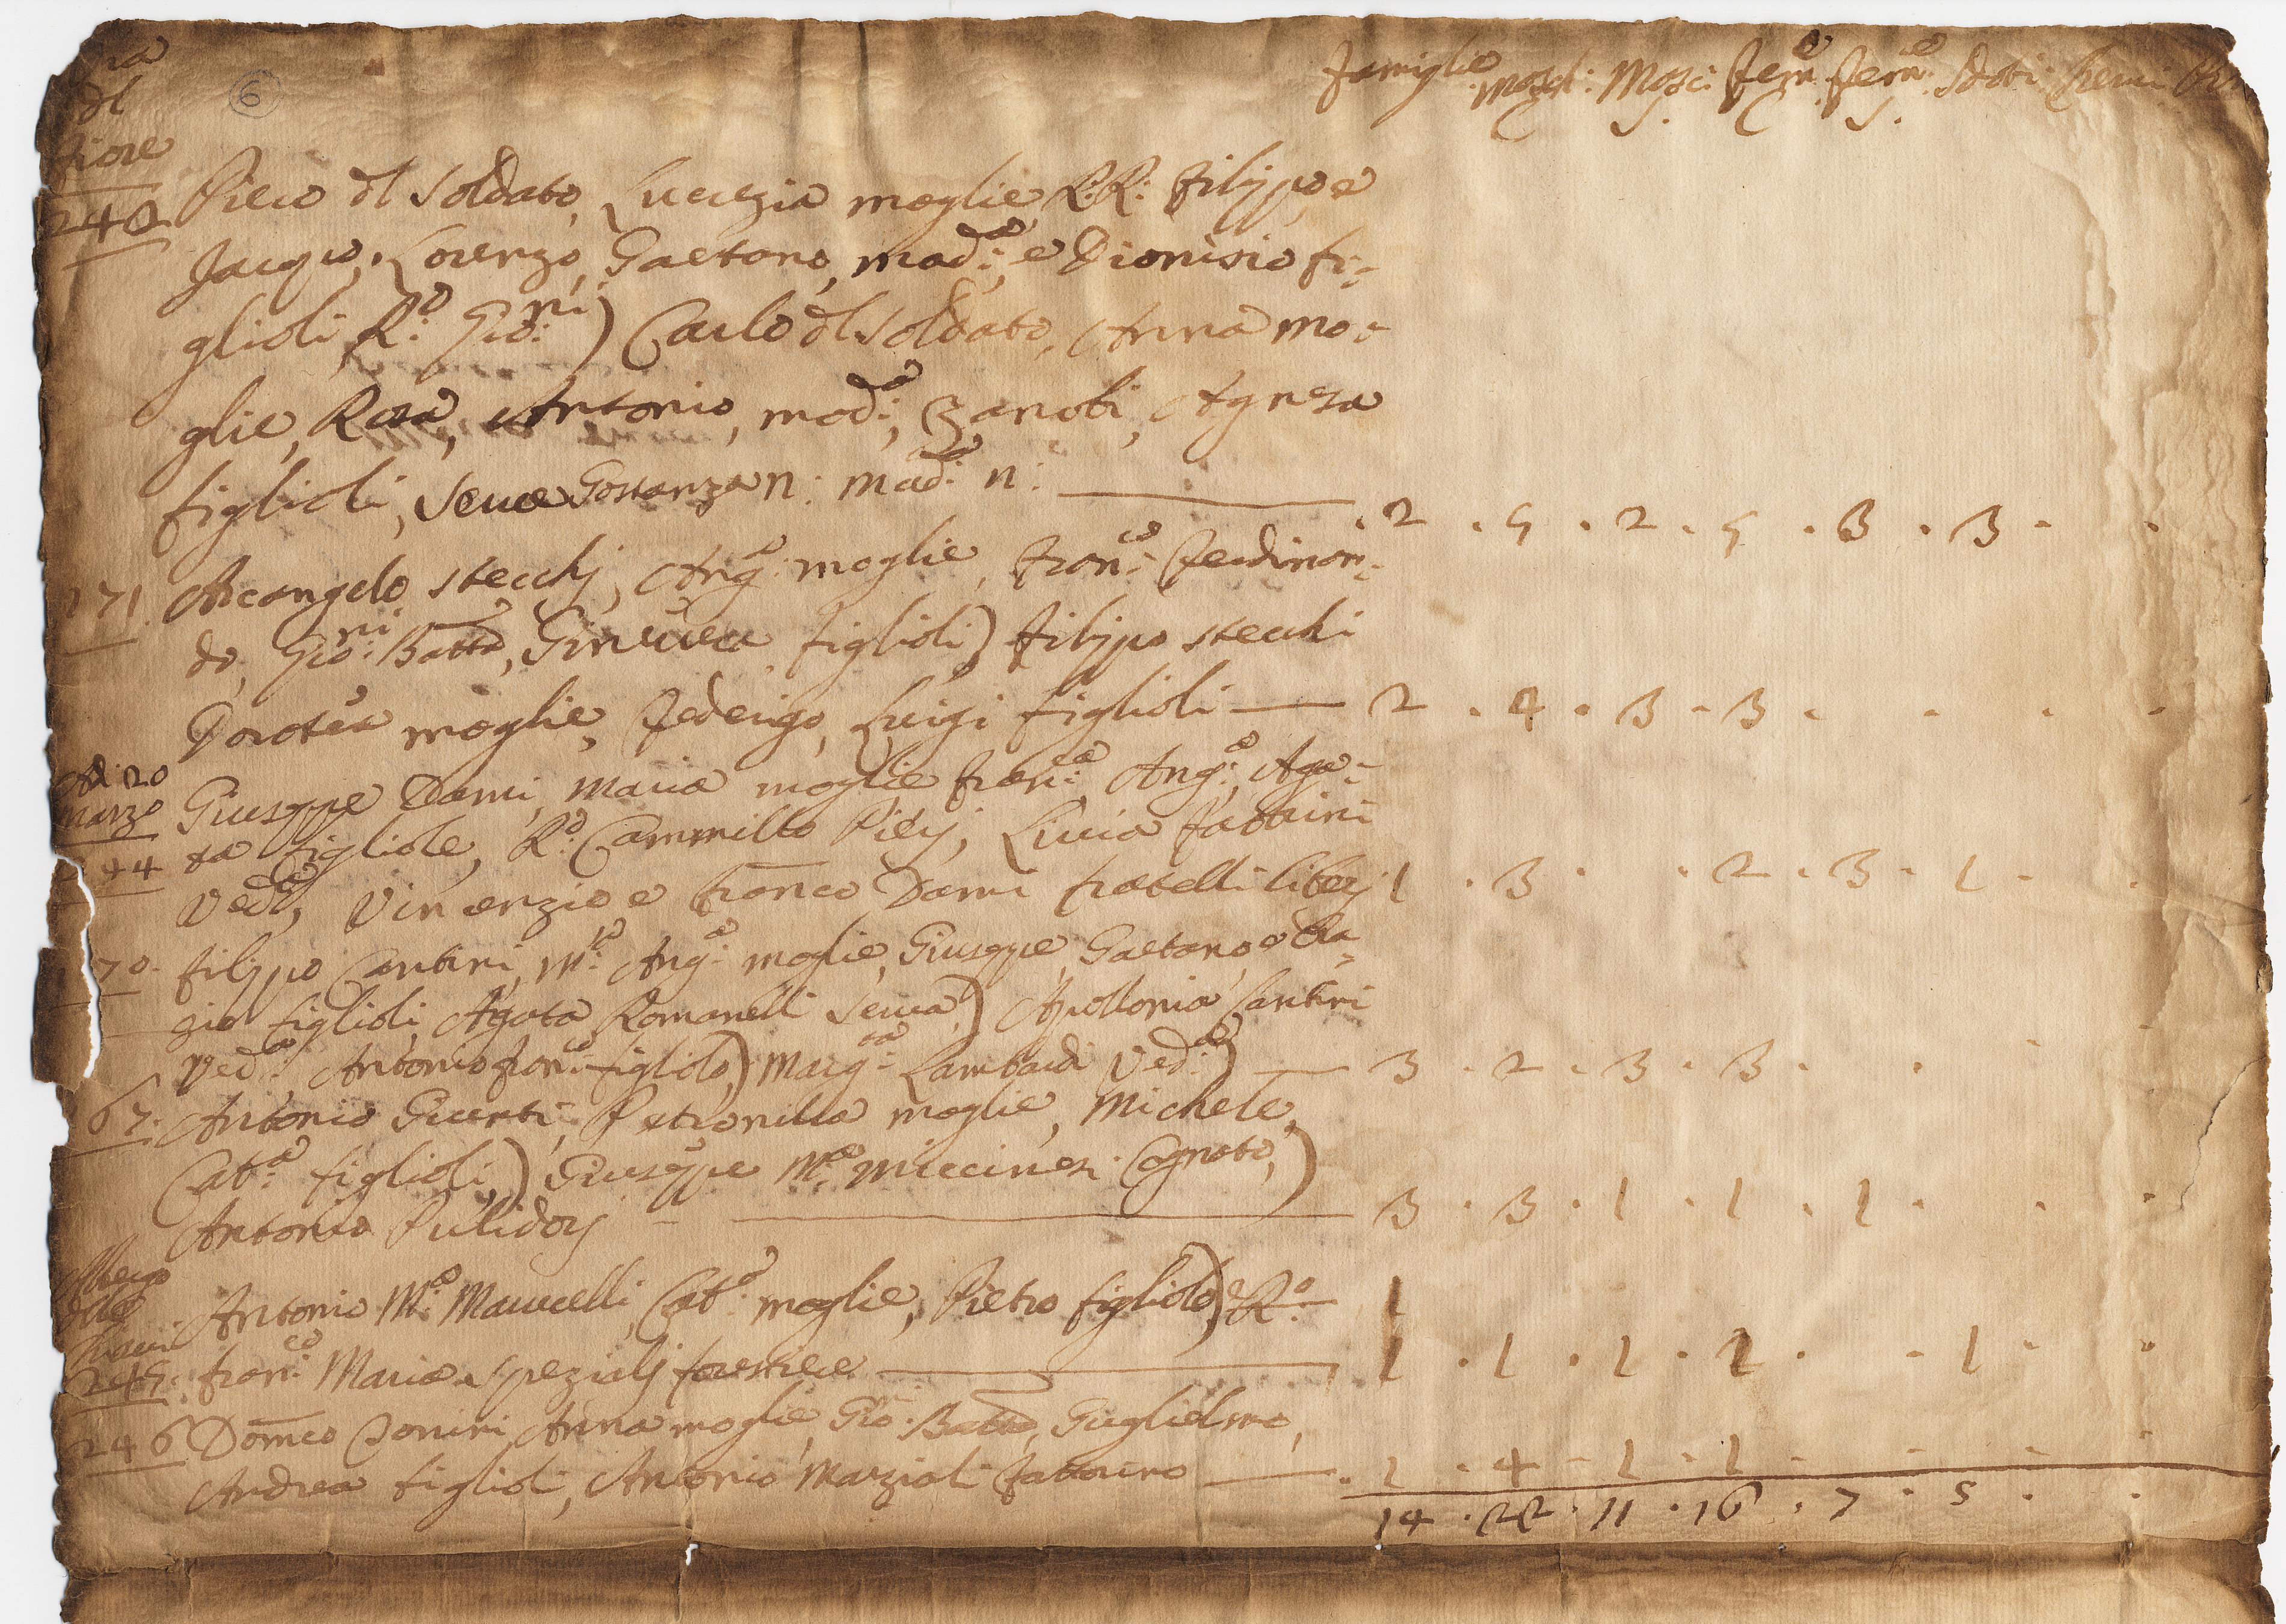 Famiglie Masch: Masc: Fem.e Fem.e
C S. C S.
6
dl
fiore
240 Piero dl Soldato, Lucrezia moglie R.R: Filippo e
Jacopo, Lorenzo, Gaetano, mad.a: e Dionisio fi-
glioli, R.o: Gio:ni) Carlo dl Soldato, Anna mo-
glie, Rosa, Antonio, mad.a:, Zanobi, Agnesa
figlioli, Serva Gostanza n: mad.a: n: 2 . 5 . 2 . 5 . 3 . 3 .
271. Arcangelo Stecchj, Ang.a: moglie, Fran.co: Ferdinan-
do, Gio:ni Batta, Ginevera figlioli) Filippo Stecchi
Dorotea moglie, Federigo, Luigi figlioli 2 . 4 . 3 . 3 .
Adi 20
Marzo Giuseppe Dami, Maria moglie Fran.ca: Ang.a:, Aga-
44 ta figliole, R.o: Cammillo Pierj, Livia Fattrini
Ved.a:, Vincenzio e Franco Dami fratelli liberj 1 . 3 . . 2 . 3 . 1 .
70. Filippo Cantini, M.a: Ang.a: moglie, Giuseppe, Gaetano e Bia-
gio figlioli, Agata Romanelli Serva) Apollonia Cantini
Ved.a: Antonio Fran.co: figliolo) Marg.ta: Lambardi Ved.a:) 3 . 2 . 3 . 3 .
67. Antonio Giunti, Petronilla moglie, Michele,
Cat.a: figlioli,) Giuseppe M.a: Miccinesi Cognato,)
Antonio Pulidorj 3 . 3 . 1 . 1 . 1 .
Antonio M.a: Maruccelli, Cat.a: moglie, Pietro figliolo) R.o: 1
245. Fran.co: Maria Spezialj forestiere 1 . 1 . 1 . 2 . . 1 .
246 Domco Donini, Anna moglie, Gio:ni Batta, Guglielmo,
Andrea figlioli, Antonio Marziali Fattorino 1 . 4 . 1 . 1 .
14 . 22 . 11 . 16 . 7 . 5 .